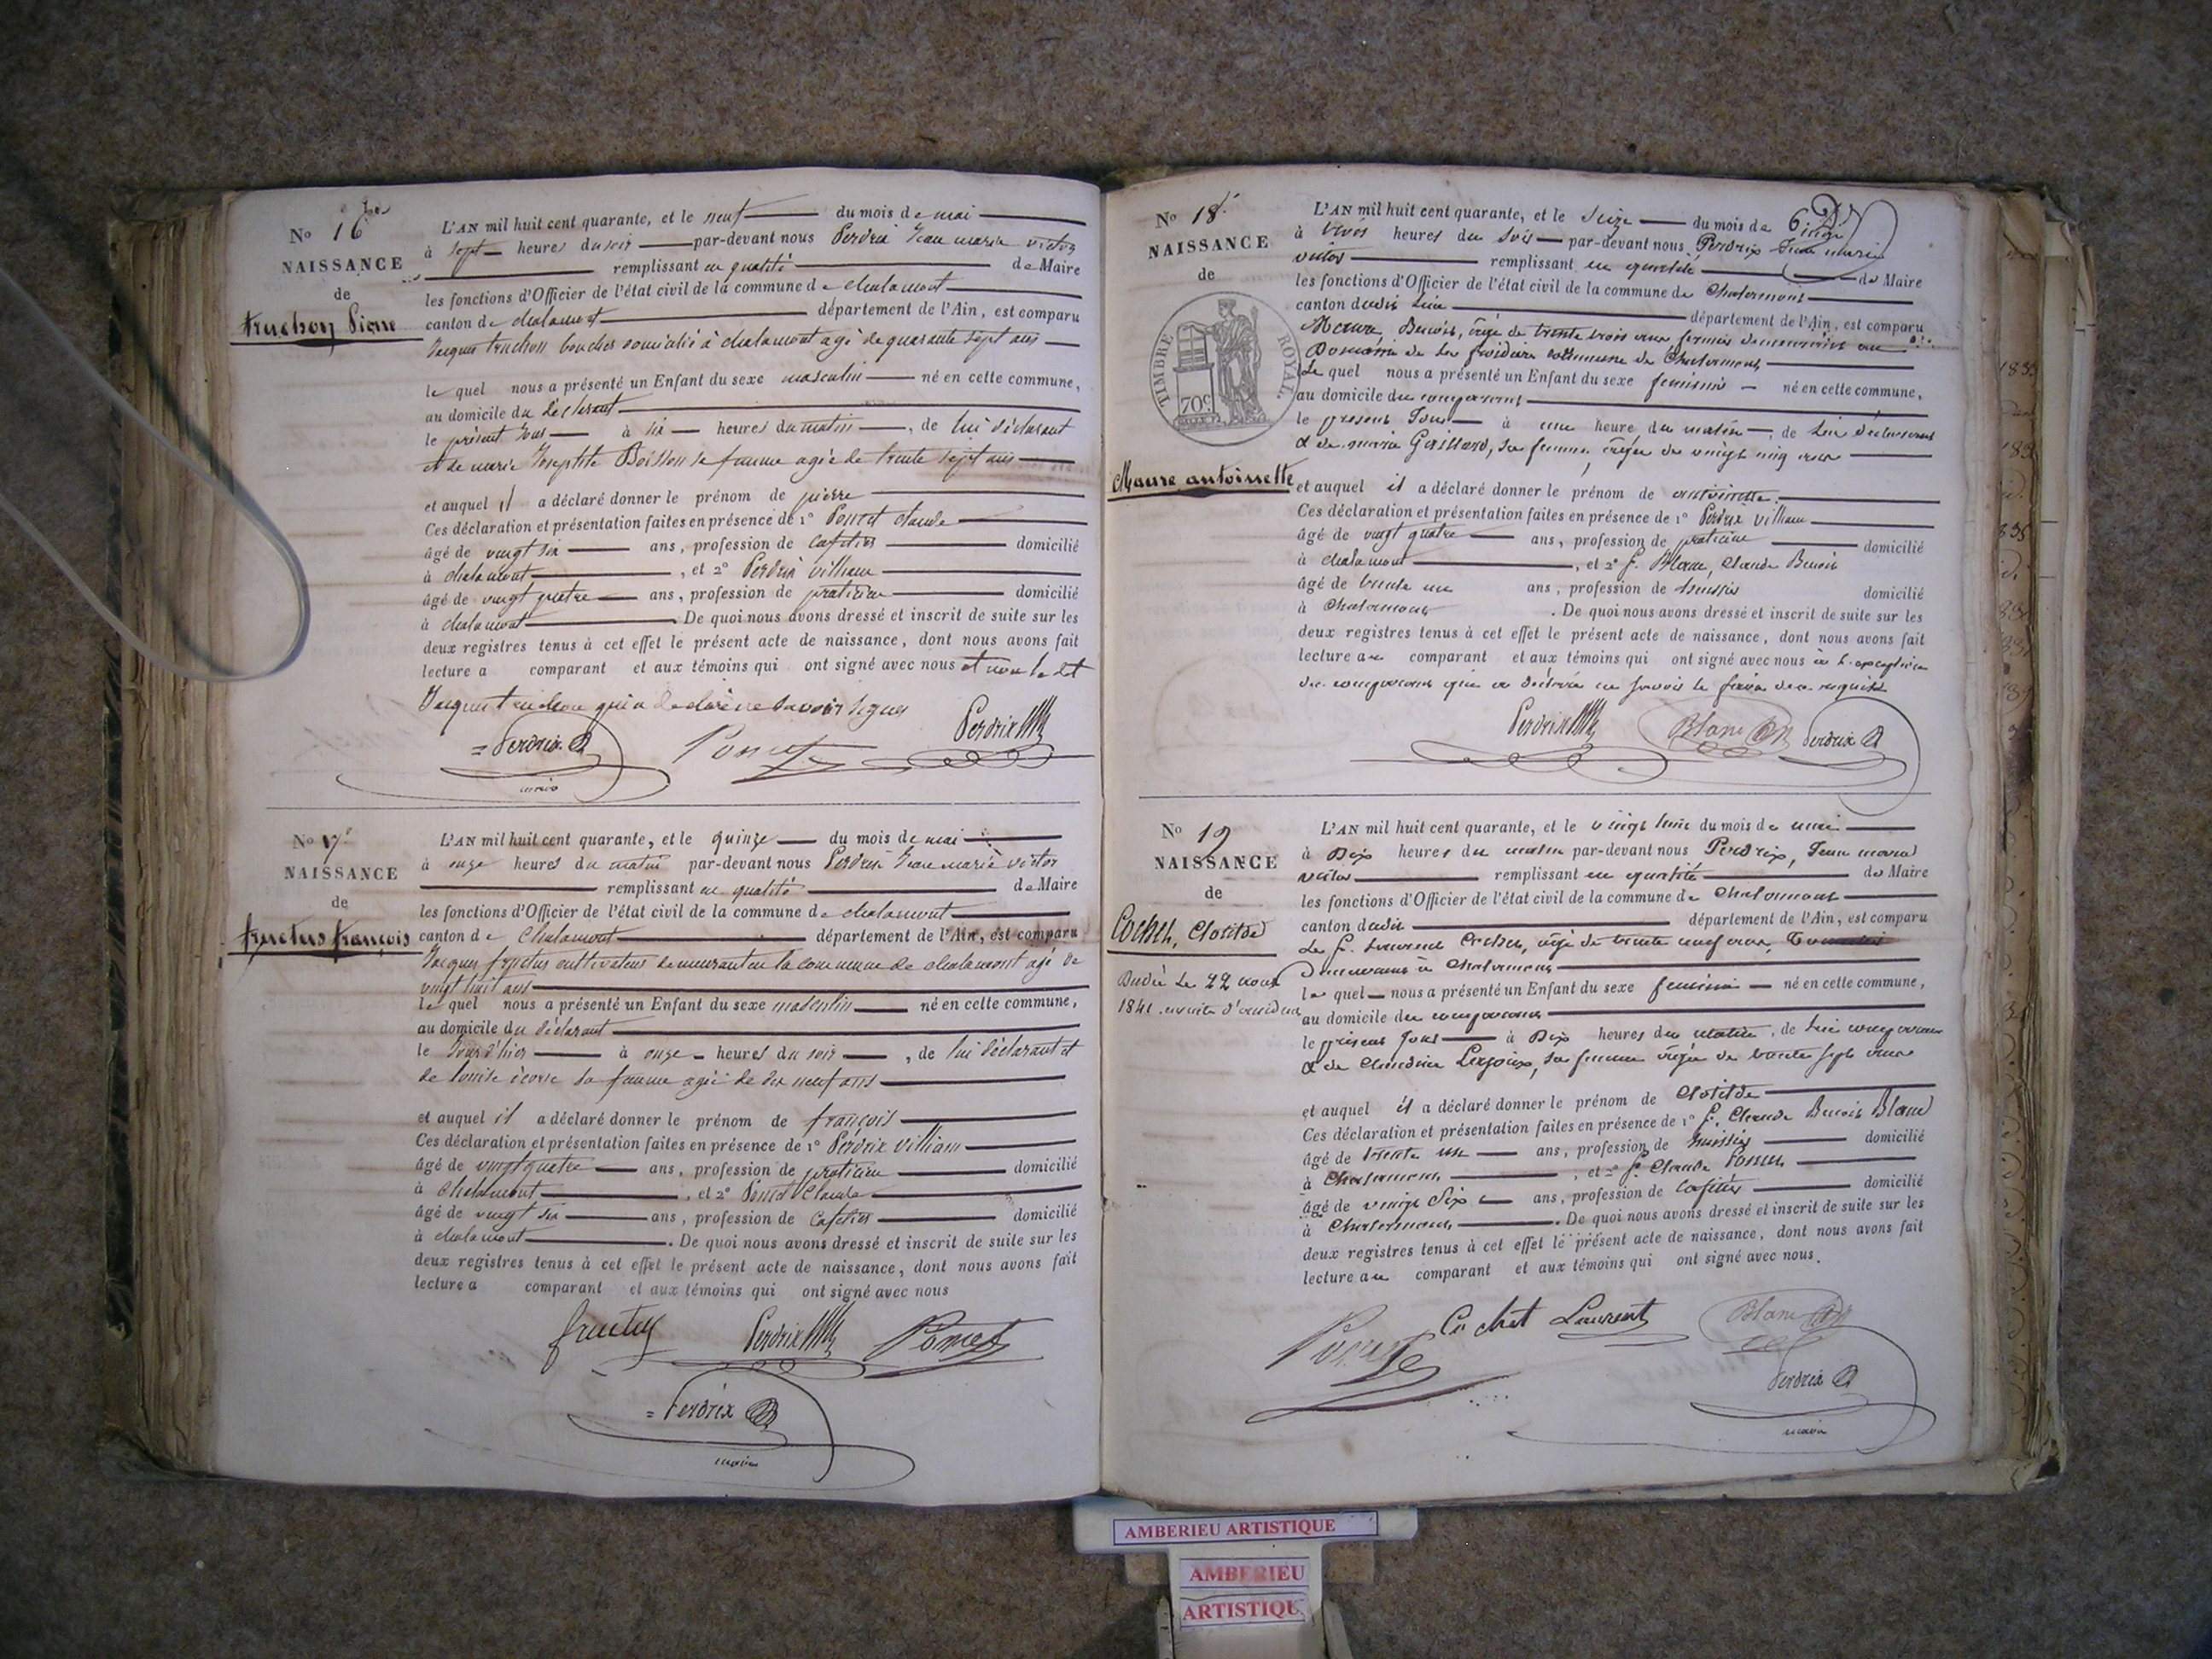 No 16
NAISSANCE
de
truchon Pierre
L'AN mil huit cent quarante, et le neuf du mois de mai
à sept heures du soir par-devant nous Perdrix Jean marie victor
remplissant en qualité de Maire
les fonctions d'Officier de l'état civil de la commune de chalamont
canton de chalamont département de l'Ain, est comparu
Jacques truchon boucher domicilié à chalamont agé de quarante sept ans
le quel nous a présenté un Enfant du sexe masculin né en cette commune,
au domicile du déclarant
le présent jour à six heures du matin, de lui déclarant
et de marie Josephte Boisson sa femme agée de trente sept ans
et auquel il a déclaré donner le prénom de pierre
Ces déclaration et présentation faites en présence de 1° Poncet claude
âgé de vingt six ans, profession de cafetier domicilié
à chalamont, et 2° Perdrix villiam
âgé de vingt quatre ans, profession de praticien domicilié
à chalamont. De quoi nous avons dressé et inscrit de suite sur les
deux registres tenus à cet effet le présent acte de naissance, dont nous avons fait
lecture a comparant et aux témoins qui ont signé avec nous et non le dt
Jacques truchon qui a déclaré ne savoir signer
Perdrix Poncet Perdrix
maire
No 17
NAISSANCE
de
fructus françois
L'AN mil huit cent quarante, et le quinze du mois de mai
à onze heures du matin par-devant nous Perdrix Jean marie victor
remplissant en qualité de Maire
les fonctions d'Officier de l'état civil de la commune de chalamont
canton de Chalamont département de l'Ain, est comparu
Jacques fructus cultivateur demeurant en la commune de chalamont agé de
vingt huit ans
le quel nous a présenté un Enfant du sexe masculin né en cette commune,
au domicile du déclarant
le Jour d'hier à onze heures du soir, de lui déclarant et
de louise sa femme agée de dix neuf ans
et auquel il a déclaré donner le prénom de françois
Ces déclaration et présentation faites en présence de 1° Perdrix villiam
âgé de vingt quatre ans, profession de praticien domicilié
à chalamont, et 2° Poncet Claude
âgé de vingt six ans, profession de cafetier domicilié
à chalamont. De quoi nous avons dressé et inscrit de suite sur les
deux registres tenus à cet effet le présent acte de naissance, dont nous avons fait
lecture a comparant et aux témoins qui ont signé avec nous
fructus Perdrix Poncet
Perdrix
maire
No 18
NAISSANCE
de
TIMBRE ROYAL.
70c
Maure antoinette
L'AN mil huit cent quarante, et le Seize du mois de
à trois heures du soir par-devant nous Perdrix Jean marie
victor remplissant en qualité de Maire
les fonctions d'Officier de l'état civil de la commune de Chalamont
canton dudit lieu département de l'Ain, est comparu
Maure, Benoit, âgé de trente trois ans fermier demeurant au
Domaine de la froidière commune de Chalamont
Le quel nous a présenté un Enfant du sexe feminin né en cette commune,
au domicile du comparant
le present Jour à une heure du matin, de lui déclarant
& de marie Gaillard, sa femme, âgée de vingt cinq ans
et auquel il a déclaré donner le prénom de antoinette.
Ces déclaration et présentation faites en présence de 1° Perdrix villiam
âgé de vingt quatre ans, profession de praticien domicilié
à chalamont, et 2° f. Blanc, Claude Benoit
âgé de trente un ans, profession de huissier domicilié
à Chalamont. De quoi nous avons dressé et inscrit de suite sur les
deux registres tenus à cet effet le présent acte de naissance, dont nous avons fait
lecture au comparant et aux témoins qui ont signé avec nous à l'exception
du comparant qui a déclaré ne savoir le faire de ce requis
Perdrix Blanc Perdrix
No 19
NAISSANCE
de
Cochet, Clotilde
Décédée Le 22 aout
1841
L'AN mil huit cent quarante, et le vingt huit du mois de mai
à Dix heures du matin par-devant nous Perdrix, Jean marie
victor remplissant en qualité de Maire
les fonctions d'Officier de l'état civil de la commune de Chalamont
canton dudit département de l'Ain, est comparu
Le f. Laurent Cochet, âgé de trente neuf ans,
Demeurant à Chalamont
le quel nous a présenté un Enfant du sexe feminin né en cette commune,
au domicile du comparant
le présent Jour à Dix heures du matin, de lui comparant
& de Claudine sa femme âgée de trente sept ans
et auquel il a déclaré donner le prénom de Clotilde
Ces déclaration et présentation faites en présence de 1° f. Claude Benoit Blanc
âgé de trente un ans, profession de huissier domicilié
à Chalamont, et 2° f. Claude Poncet
âgé de vingt Six ans, profession de Cafetier domicilié
à Chalamont. De quoi nous avons dressé et inscrit de suite sur les
deux registres tenus à cet effet le présent acte de naissance, dont nous avons fait
lecture au comparant et aux témoins qui ont signé avec nous.
Poncet Cochet Laurent Blanc
Perdrix
maire
AMBERIEU ARTISTIQUE
AMBERIEU
ARTISTIQU